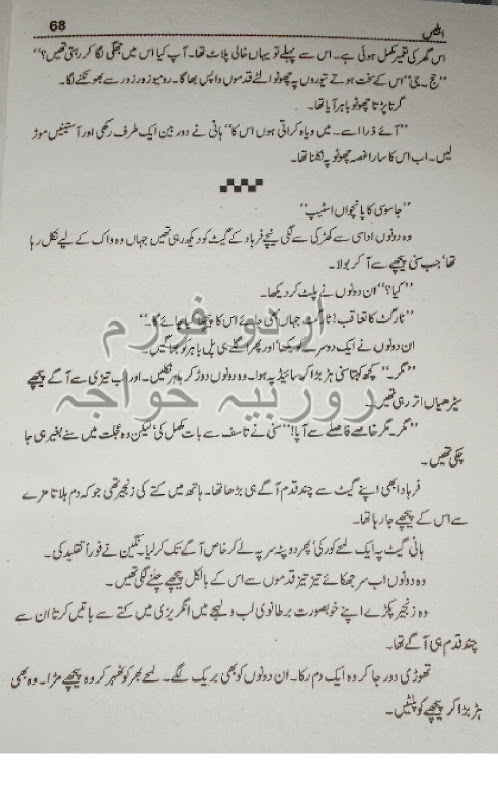 68 ابلیس
اس گھر کی تعمیر مکمل ہوئی ہے۔ اس سے پہلے تو یہاں خالی پلاٹ تھا۔ آپ کیا اس میں جھگی لگا کر رہتی تھیں؟“
”جج۔ جی“ اس کے سخت ہوتے تیوروں پہ چھوٹو الٹے قدموں واپس بھاگا۔ رومیو زور زور سے بھونکنے لگا۔
گرتا پڑتا چھوٹو باہر آیا تھا۔
”آئے ذرا اسے۔ میں ویاہ کراتی ہوں اس کا“ ہانی نے دوربین ایک طرف رکھی اور آستینیں موڑ
لیں۔ اب اس کا سارا غصہ چھوٹو پہ نکلنا تھا۔
”جاسوسی کا پانچواں اسٹیپ“
وہ دونوں اداسی سے کھڑکی سے لگی نیچے فرہاد کے گیٹ کو دیکھ رہی تھیں جہاں وہ واک کے لیے نکل رہا
تھا‘ جب سنی پیچھے سے آ کر بولا۔
”کیا؟“ ان دونوں نے پلٹ کر دیکھا۔
”ٹارگٹ کا تعاقب! ٹارگٹ جہاں بھی جائے اس کا پیچھا کیا جائے گا۔“
ان دونوں نے ایک دوسرے کو دیکھا‘ اور پھر اگلے ہی پل باہر کو بھاگیں۔
”مگر۔“ کچھ کہتا سنی ہڑبڑا کہ سائیڈ پہ ہوا۔ وہ دونوں دوڑ کر باہر نکلیں۔ اور اب تیزی سے آگے پیچھے
سیڑھیاں اتر رہی تھیں۔
”مگر۔ مگر خاصے فاصلے سے آپا!“ سنی نے تاسف سے بات مکمل کی‘ لیکن وہ عجلت میں سنے بغیر ہی جا
چکی تھیں۔
فرہاد ابھی اپنے گیٹ سے چند قدم آگے ہی بڑھا تھا۔ ہاتھ میں کتے کی زنجیر تھی جو کہ دم ہلاتا مزے
سے اس کے پیچھے جا رہا تھا۔
ہانی گیٹ پہ ایک لمحے کو رکی‘ پھر دوپٹہ سر پہ لے کر خاص آگے تک کر لیا۔ نگین نے فوراً تقلید کی۔
وہ دونوں اب سر جھکائے تیز تیز قدموں سے اس کے بالکل پیچھے چلنے لگی تھیں۔
وہ زنجیر پکڑے اپنے خوبصورت برطانوی لب و لہجے میں انگریزی میں کتے سے باتیں کرتا ان سے
چند قدم ہی آگے تھا۔
تھوڑی دور جا کر وہ ایک دم رکا۔ ان دونوں کو بھی بریک لگے۔ لمحے بھر کو ٹھہر کر وہ پیچھے مڑا۔ وہ بھی
ہڑبڑا کر پیچھے کو پلٹیں۔
اردو فورم
روزبیہ خواجہ